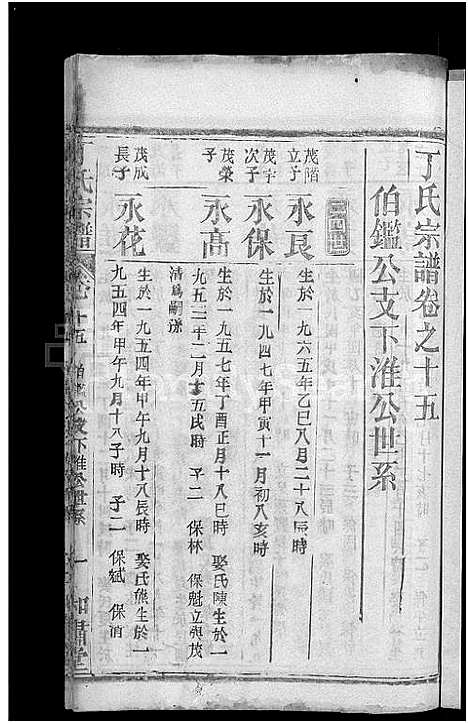 丁氏宗譜卷之十五
伯鑑公支下淮公世系
茂階立子
永良
生於一九六五年乙巳八月二十八辰時
茂宇次子
永保
生於一九四七年甲寅十一月初八亥時
茂榮子
永高
生於一九五七年丁酉正月十八巳時 娶氏陳生於一
九五二年二月十五戌時 子二 保林 保魁立與茂
清爲嗣孫
茂成長子
永花
生於一九五四年甲午九月十八辰時 娶氏熊生於一
九五四年甲午九月十八子時 子二 保斌 保
丁氏宗譜
卷之十五 伯鑑公支下淮公世系
一